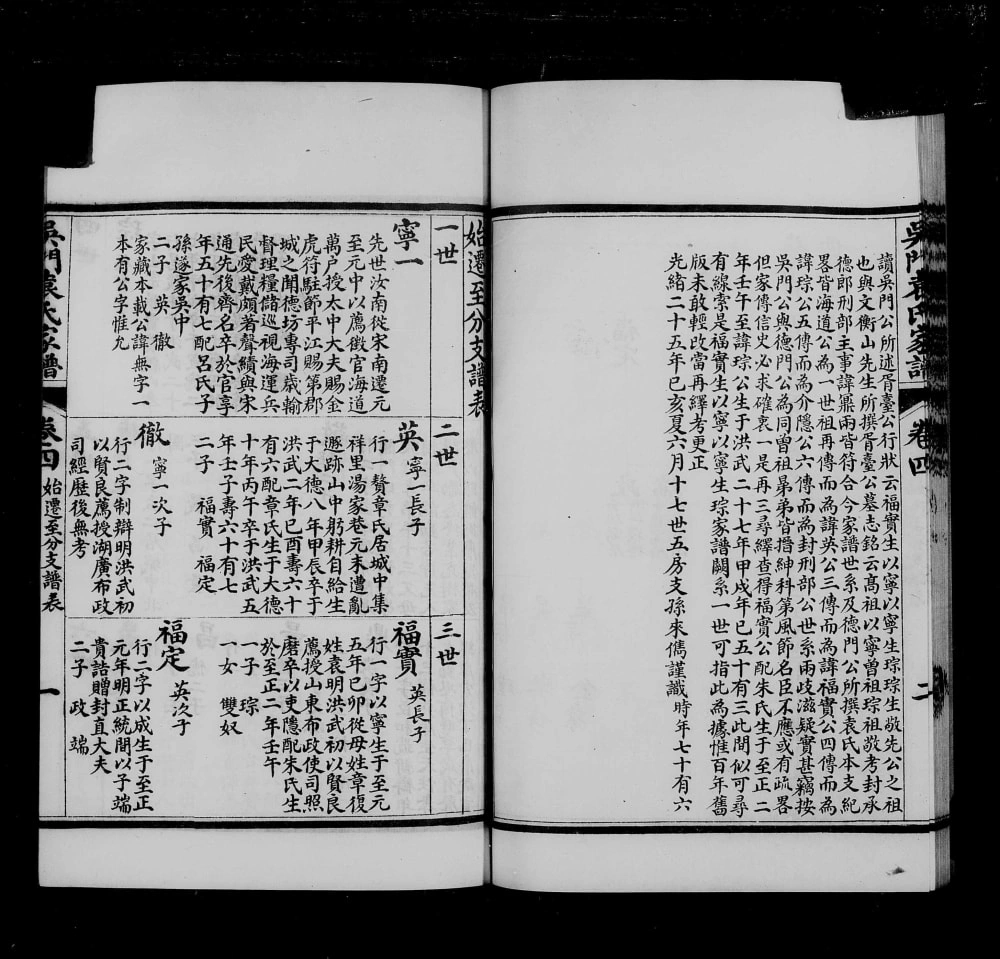 吳門袁氏家譜
卷四
二
讀吳門公所述胥臺公行狀云福實生以寧以寧生琮琮生敬先公之祖
也與文衡山先生所撰胥臺公墓志銘云高祖以寧曾祖琮祖敬考封承
德郎刑部主事諱鼐兩皆符合今家譜世系及德門公所撰袁氏本支紀
畧皆海道公為一世祖再傳而為諱英公三傳而為諱福實公四傳而為
諱琮公五傳而為介隱公六傳而為封刑部公世系兩歧滋疑實甚竊按
吳門公與德門公為同曾祖昴弟皆搢紳科第風節名臣不應或有疏畧
但家傳信史必求確衷一是再三尋繹查得福實公配朱氏生于至正二
年壬午至諱琮公生于洪武二十七年甲戌年已五十有三此間似可尋
有線索是福實生以寧以寧生琮家譜闕系一世可指此為據惟百年舊
版未敢輕改當再繹考更正
光緒二十五年己亥夏六月十七世五房支孫來儁謹識時年七十有六
始遷至分支譜表
一世
寧一
先世汝南從宋南遷元
至元中以薦徵官海道
萬户授太中大夫賜金
虎符駐節平江賜第郡
城之聞德坊專司歲輸
督理糧儲巡視海運兵
民愛戴頗著聲績與宋
通先後齊名卒於官享
年五十有七配呂氏子
孫遂家吳中
二子 英 徹
家藏本載公諱無字一
本有公字惟允
二世
英 寧一長子
行一贅章氏居城中集
祥里湯家巷元末遭亂
遯跡山中躬耕自給生
于大德八年甲辰卒于
洪武二年己酉壽六十
有六配章氏生于大德
十年丙午卒于洪武五
年壬子壽六十有七
二子 福實 福定
徹 寧一次子
行二字制辯明洪武初
以賢良薦授湖廣布政
司經歷後無考
三世
福實 英長子
行一字以寧生于至元
五年己卯從母姓章復
姓袁明洪武初以賢良
薦授山東布政使司照
磨卒以吏隱配朱氏生
於至正二年壬午
一子 琮
一女 雙奴
福定 英次子
行二字以成生于至正
元年明正統間以子端
貴誥贈封直大夫
二子 政 端
吳門袁氏家譜
卷四 始遷至分支譜表
一